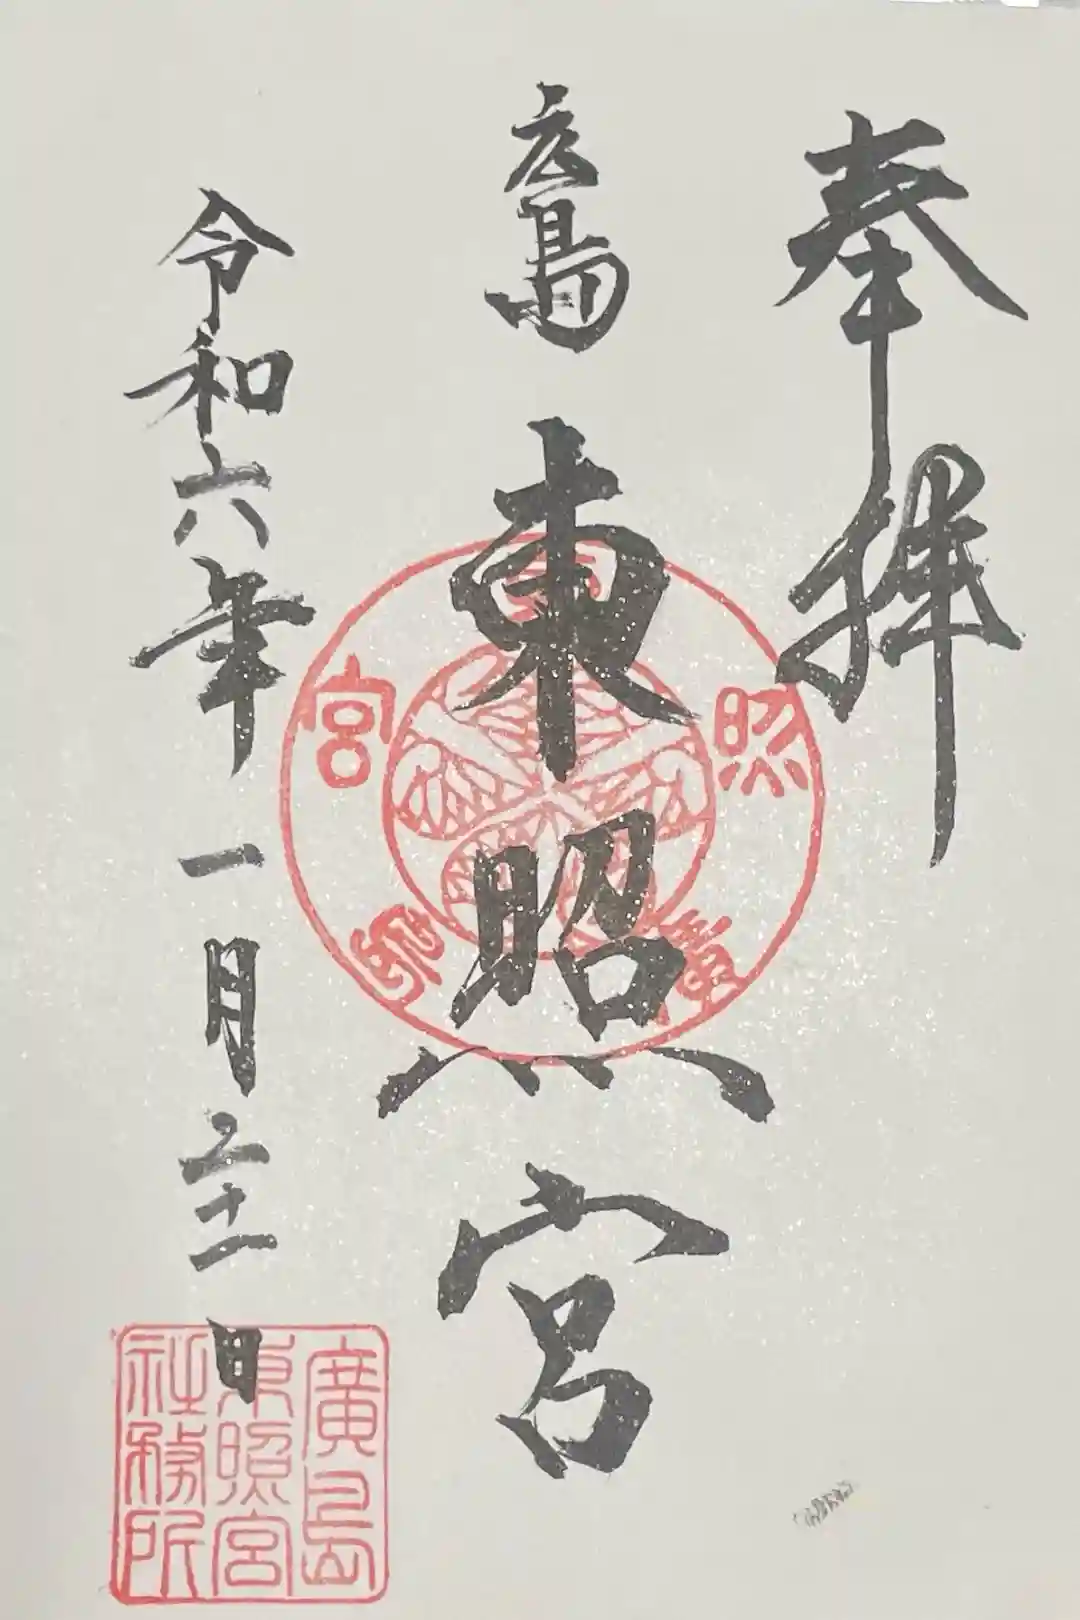 奉拝
広島
東照宮
令和六年一月二十一日
廣島
東照宮
社務所